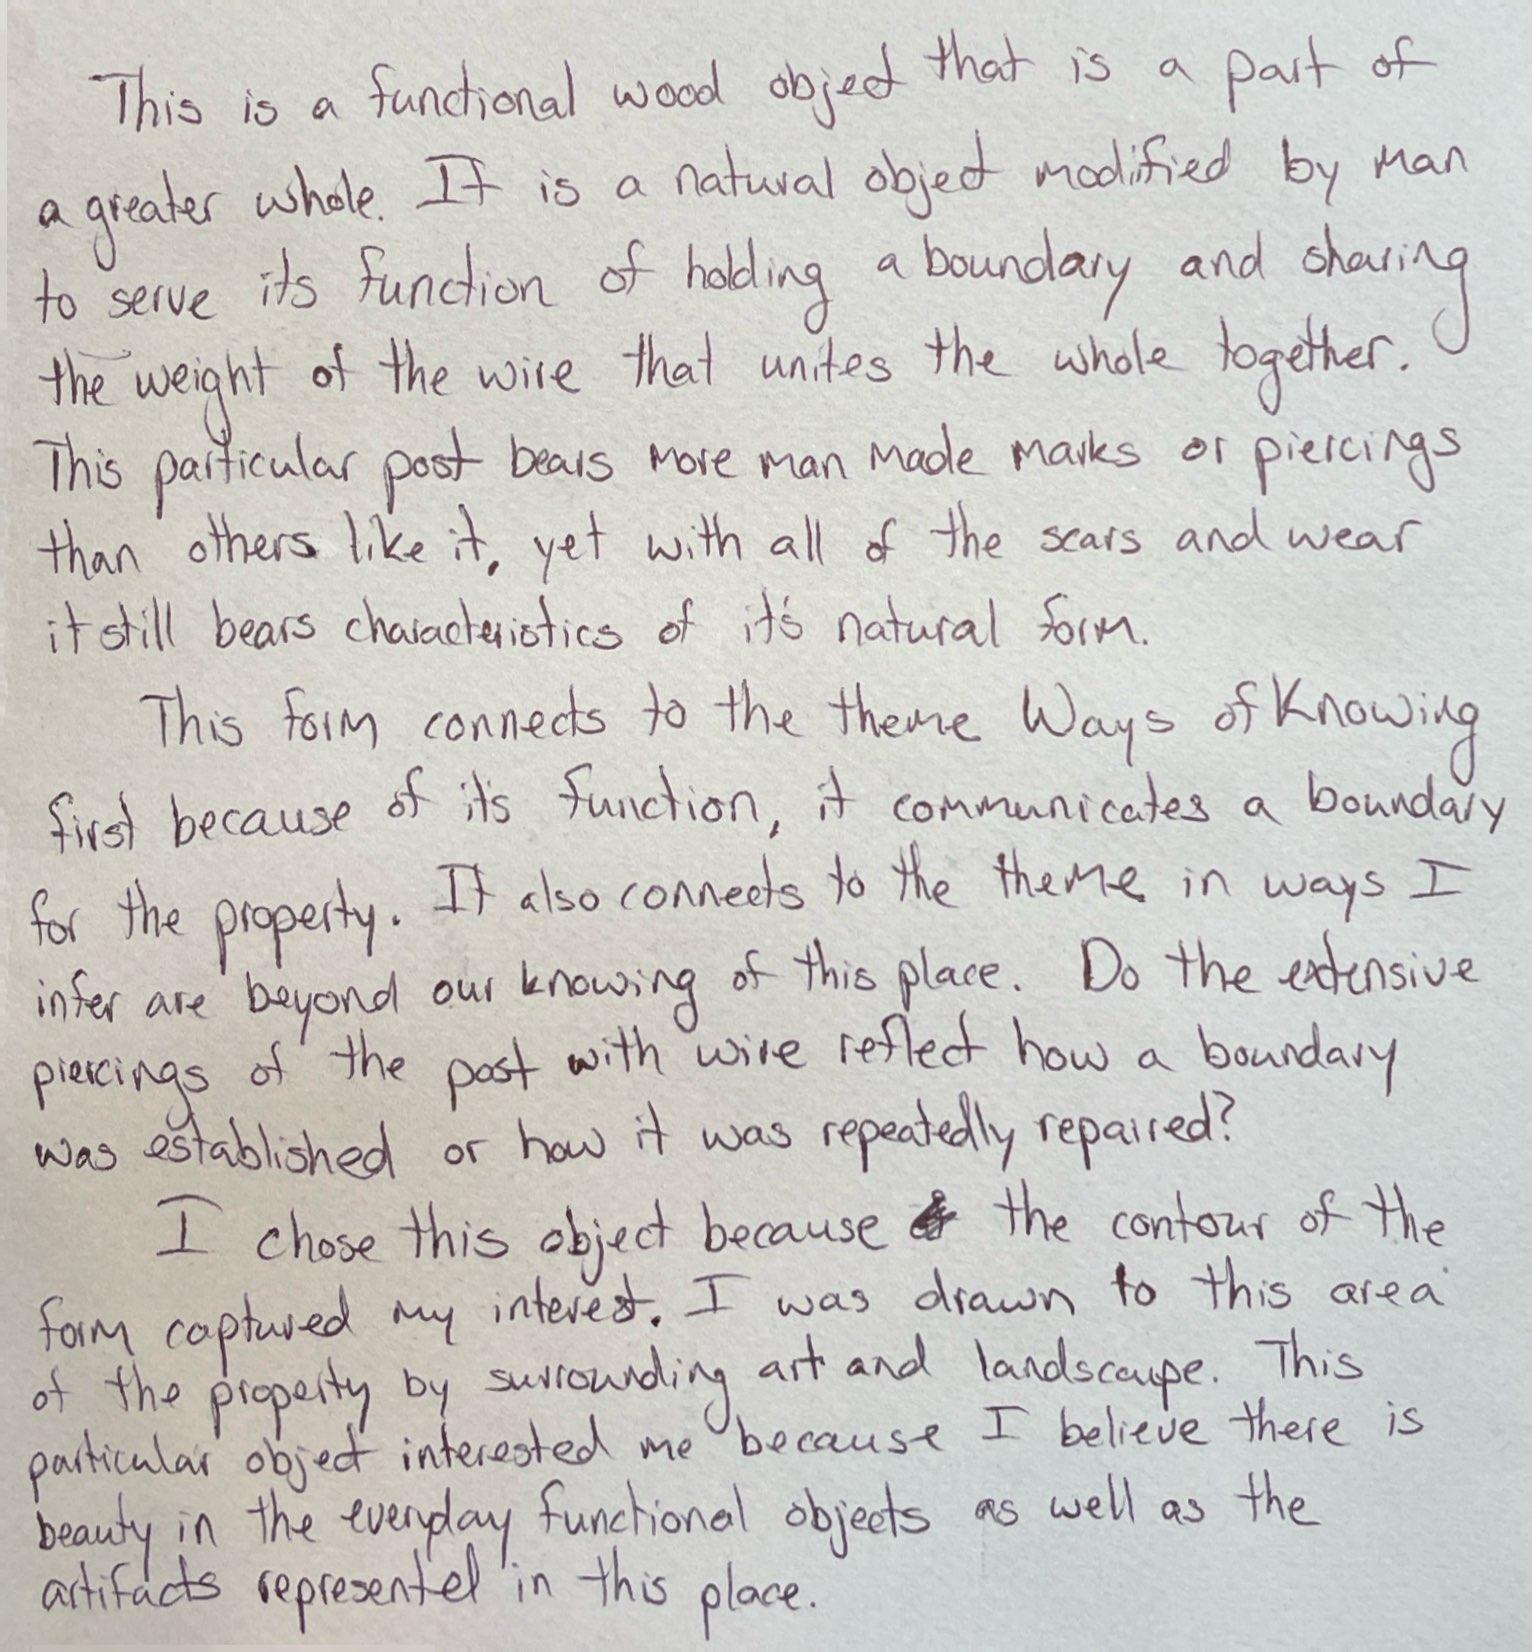 This is a functional wood object that is a part of
a greater whole. It is a natural object modified by man
to serve its function of holding a boundary and sharing
the weight of the wire that unites the whole together.
This particular post bears more man made marks or piercings
than others like it, yet with all of the scars and wear
it still bears characteristics of it's natural form.
This form connects to the theme Ways of Knowing
first because of it's function, it communicates a boundary
for the property. It also connects to the theme in ways I
infer are beyond our knowing of this place. Do the extensive
piercings of the post with wire reflect how a boundary
was established or how it was repeatedly repaired?
I chose this object because the contour of the
form captured my interest. I was drawn to this area
of the property by surrounding art and landscaupe. This
particular object interested me because I believe there is
beauty in the everyday functional objects as well as the
artifacts represented in this place.